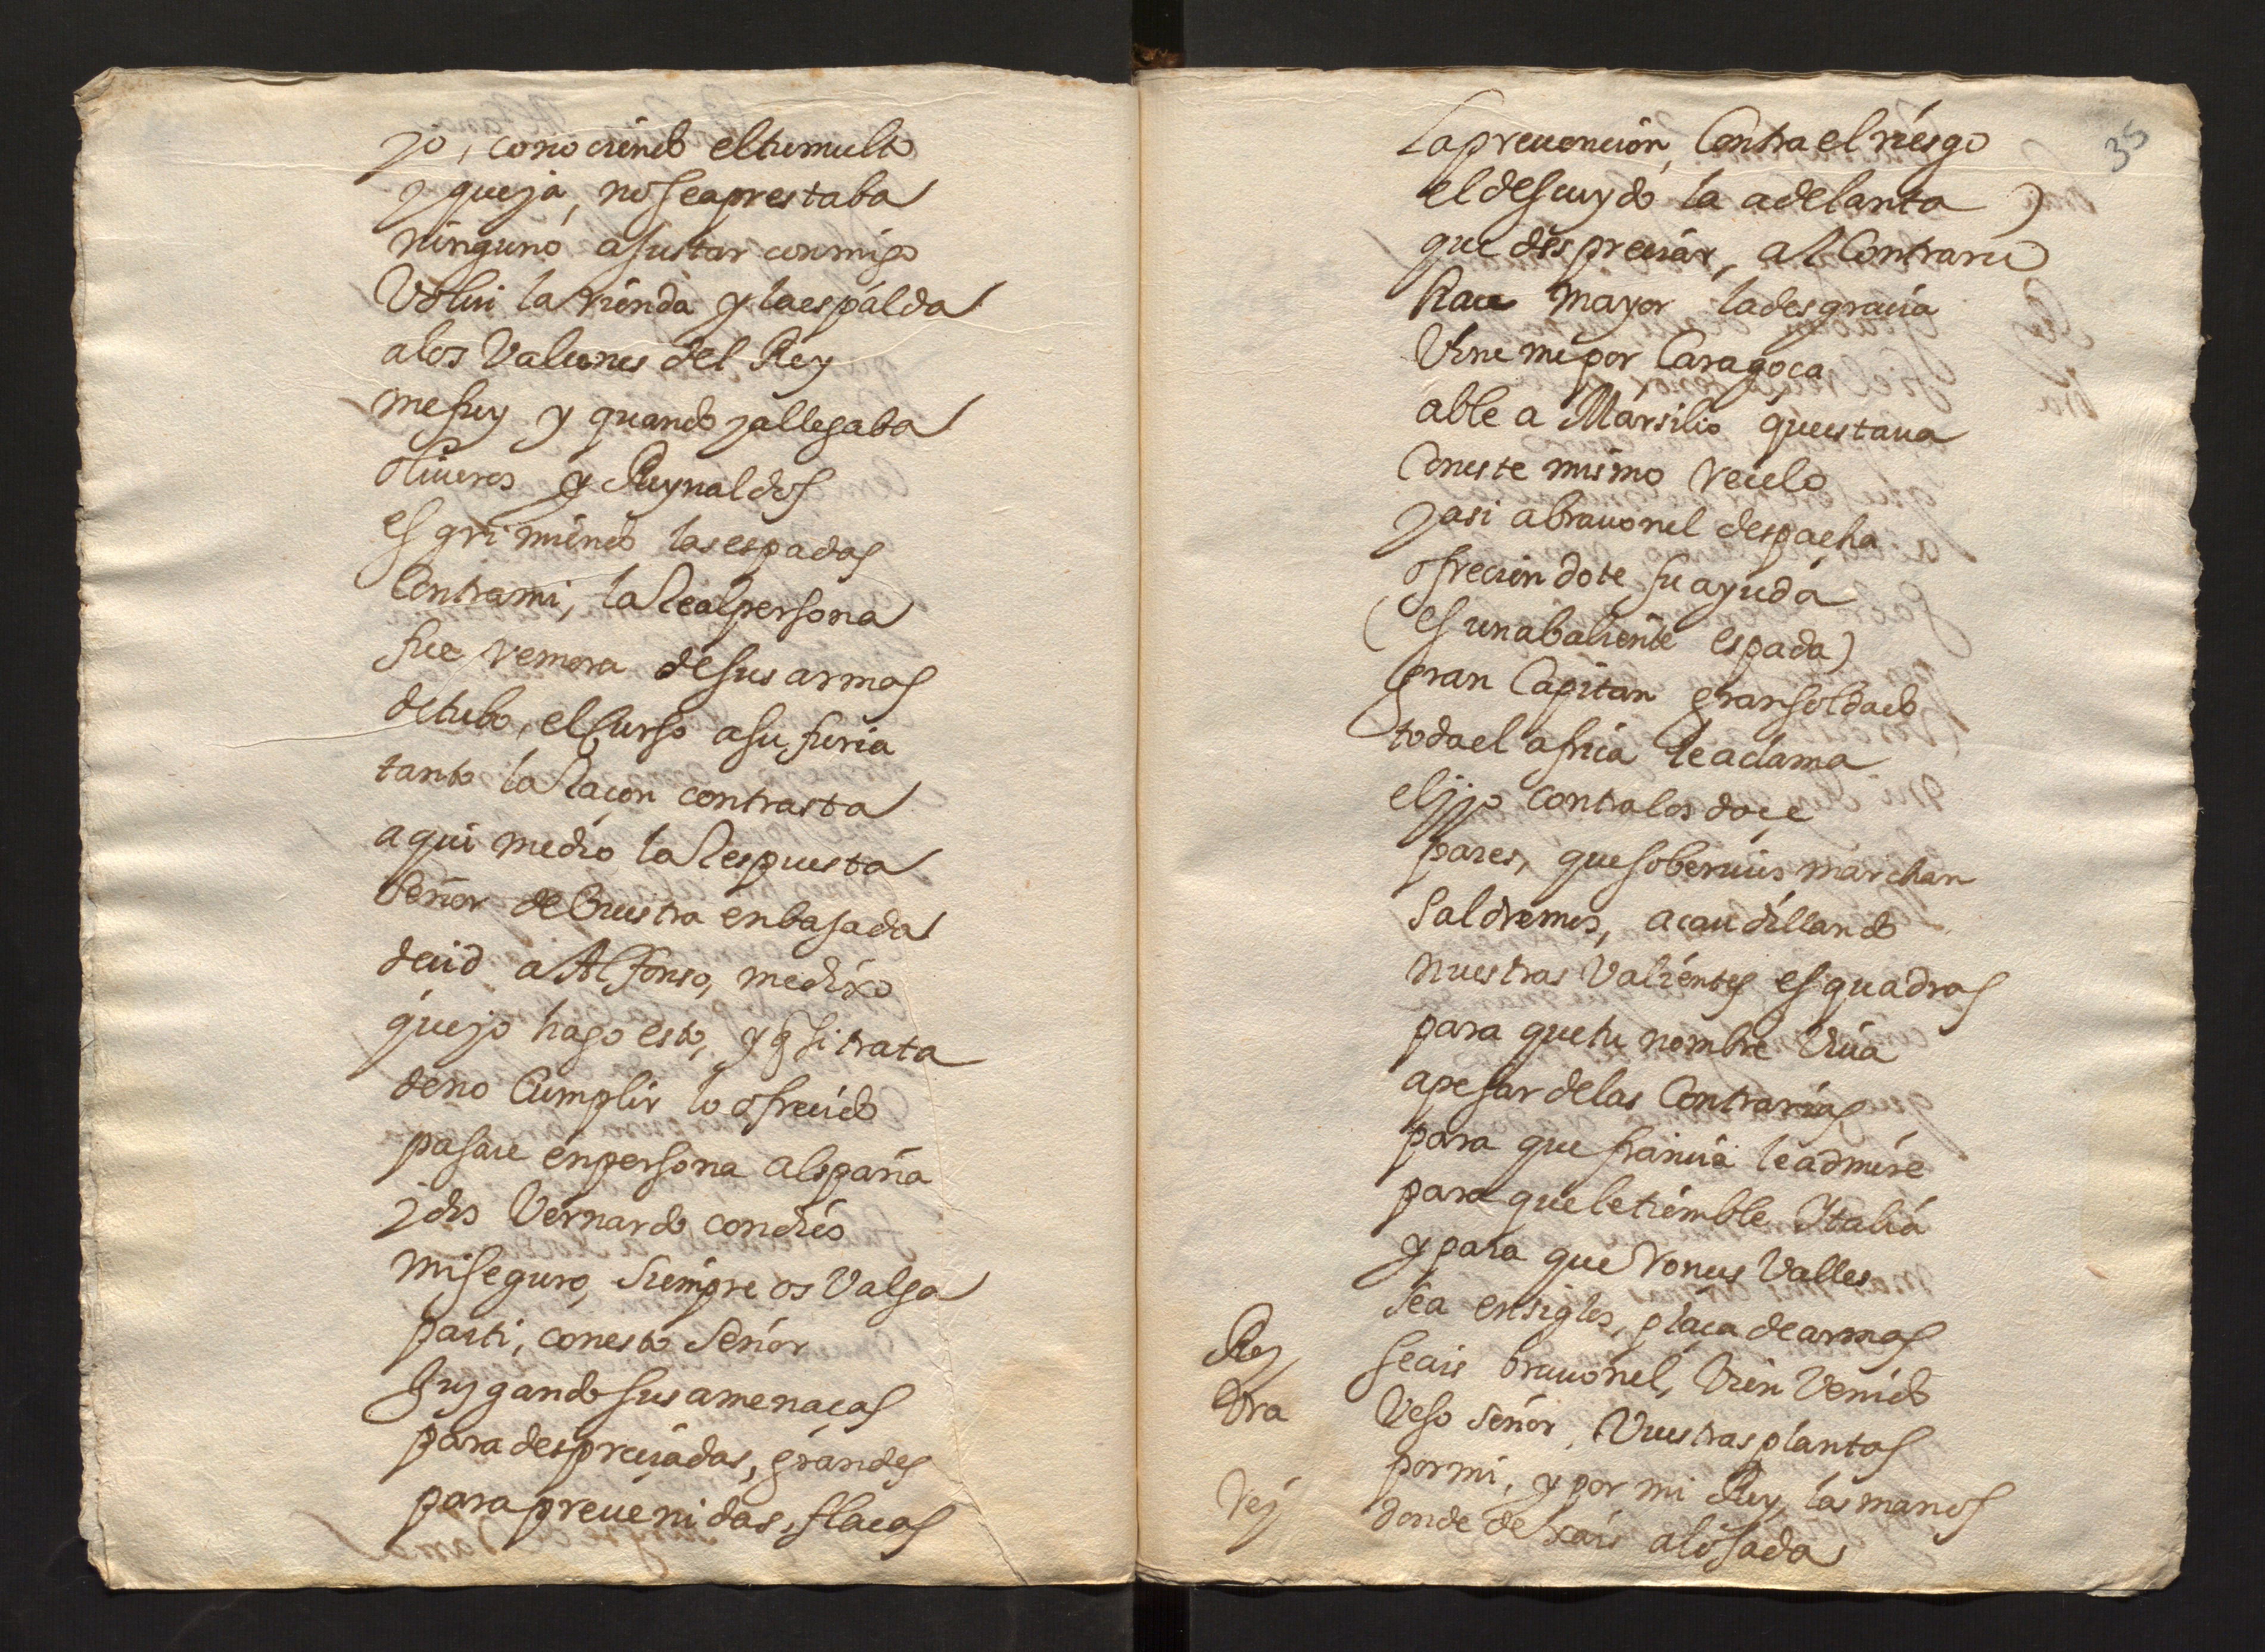 jo, conociendo el tumulto
y queja, no se aprestaba
ninguno a justar conmigo
Volui la rienda y la espalda
a los Valcones del Rey
me fuy y quando ja llegaba
oliueros y Reynaldos
esgrimiendo las espadas
Contra mi, la Real persona
fue remora de sus armas
detubo, el Curso a su furia
tanto la Raçon contrasta
aqui me dio la Respuesta
Señor de Vuestra enbajada
decid a Alfonso, me dixo
que jo hago esto, y q si trata
de no Cumplir lo ofrecido
pasare en persona a España
j dis Vernardo con dios
mi seguro, Siempre os Valga
parti, con esto Señor
Juzgando sus amenaças
para despreciadas, grandes
para preuenidas, flacas
35
La preuencion, Contra el riesgo
el descuydo la adelanta
que despreciar, al Contrario
Hace mayor la desgracia
Vine me por Caragoça
able a Marsilio que estaua
Con este mismo recelo
j asi a brauonel despacha
ofreciendote su ayuda
(es una baliente espada)
gran Capitan gran soldado
toda el africa le aclama
elijjo contra los doçe
pares, que soberuios marchan
Saldremos, acaudillando
nuestras Valientes esquadras
para que tu nombre Viua
a pesar de las Contrarias
para que francia le admire
para que le tiemble Italia
y para que ronces Valles
sea en siglos, plaça de armas
Rey seais brauonel, Vien Venido
bra Veso Señor, Vuestras plantas
por mi, y por mi Rey, las manos
rey donde dexais alojada